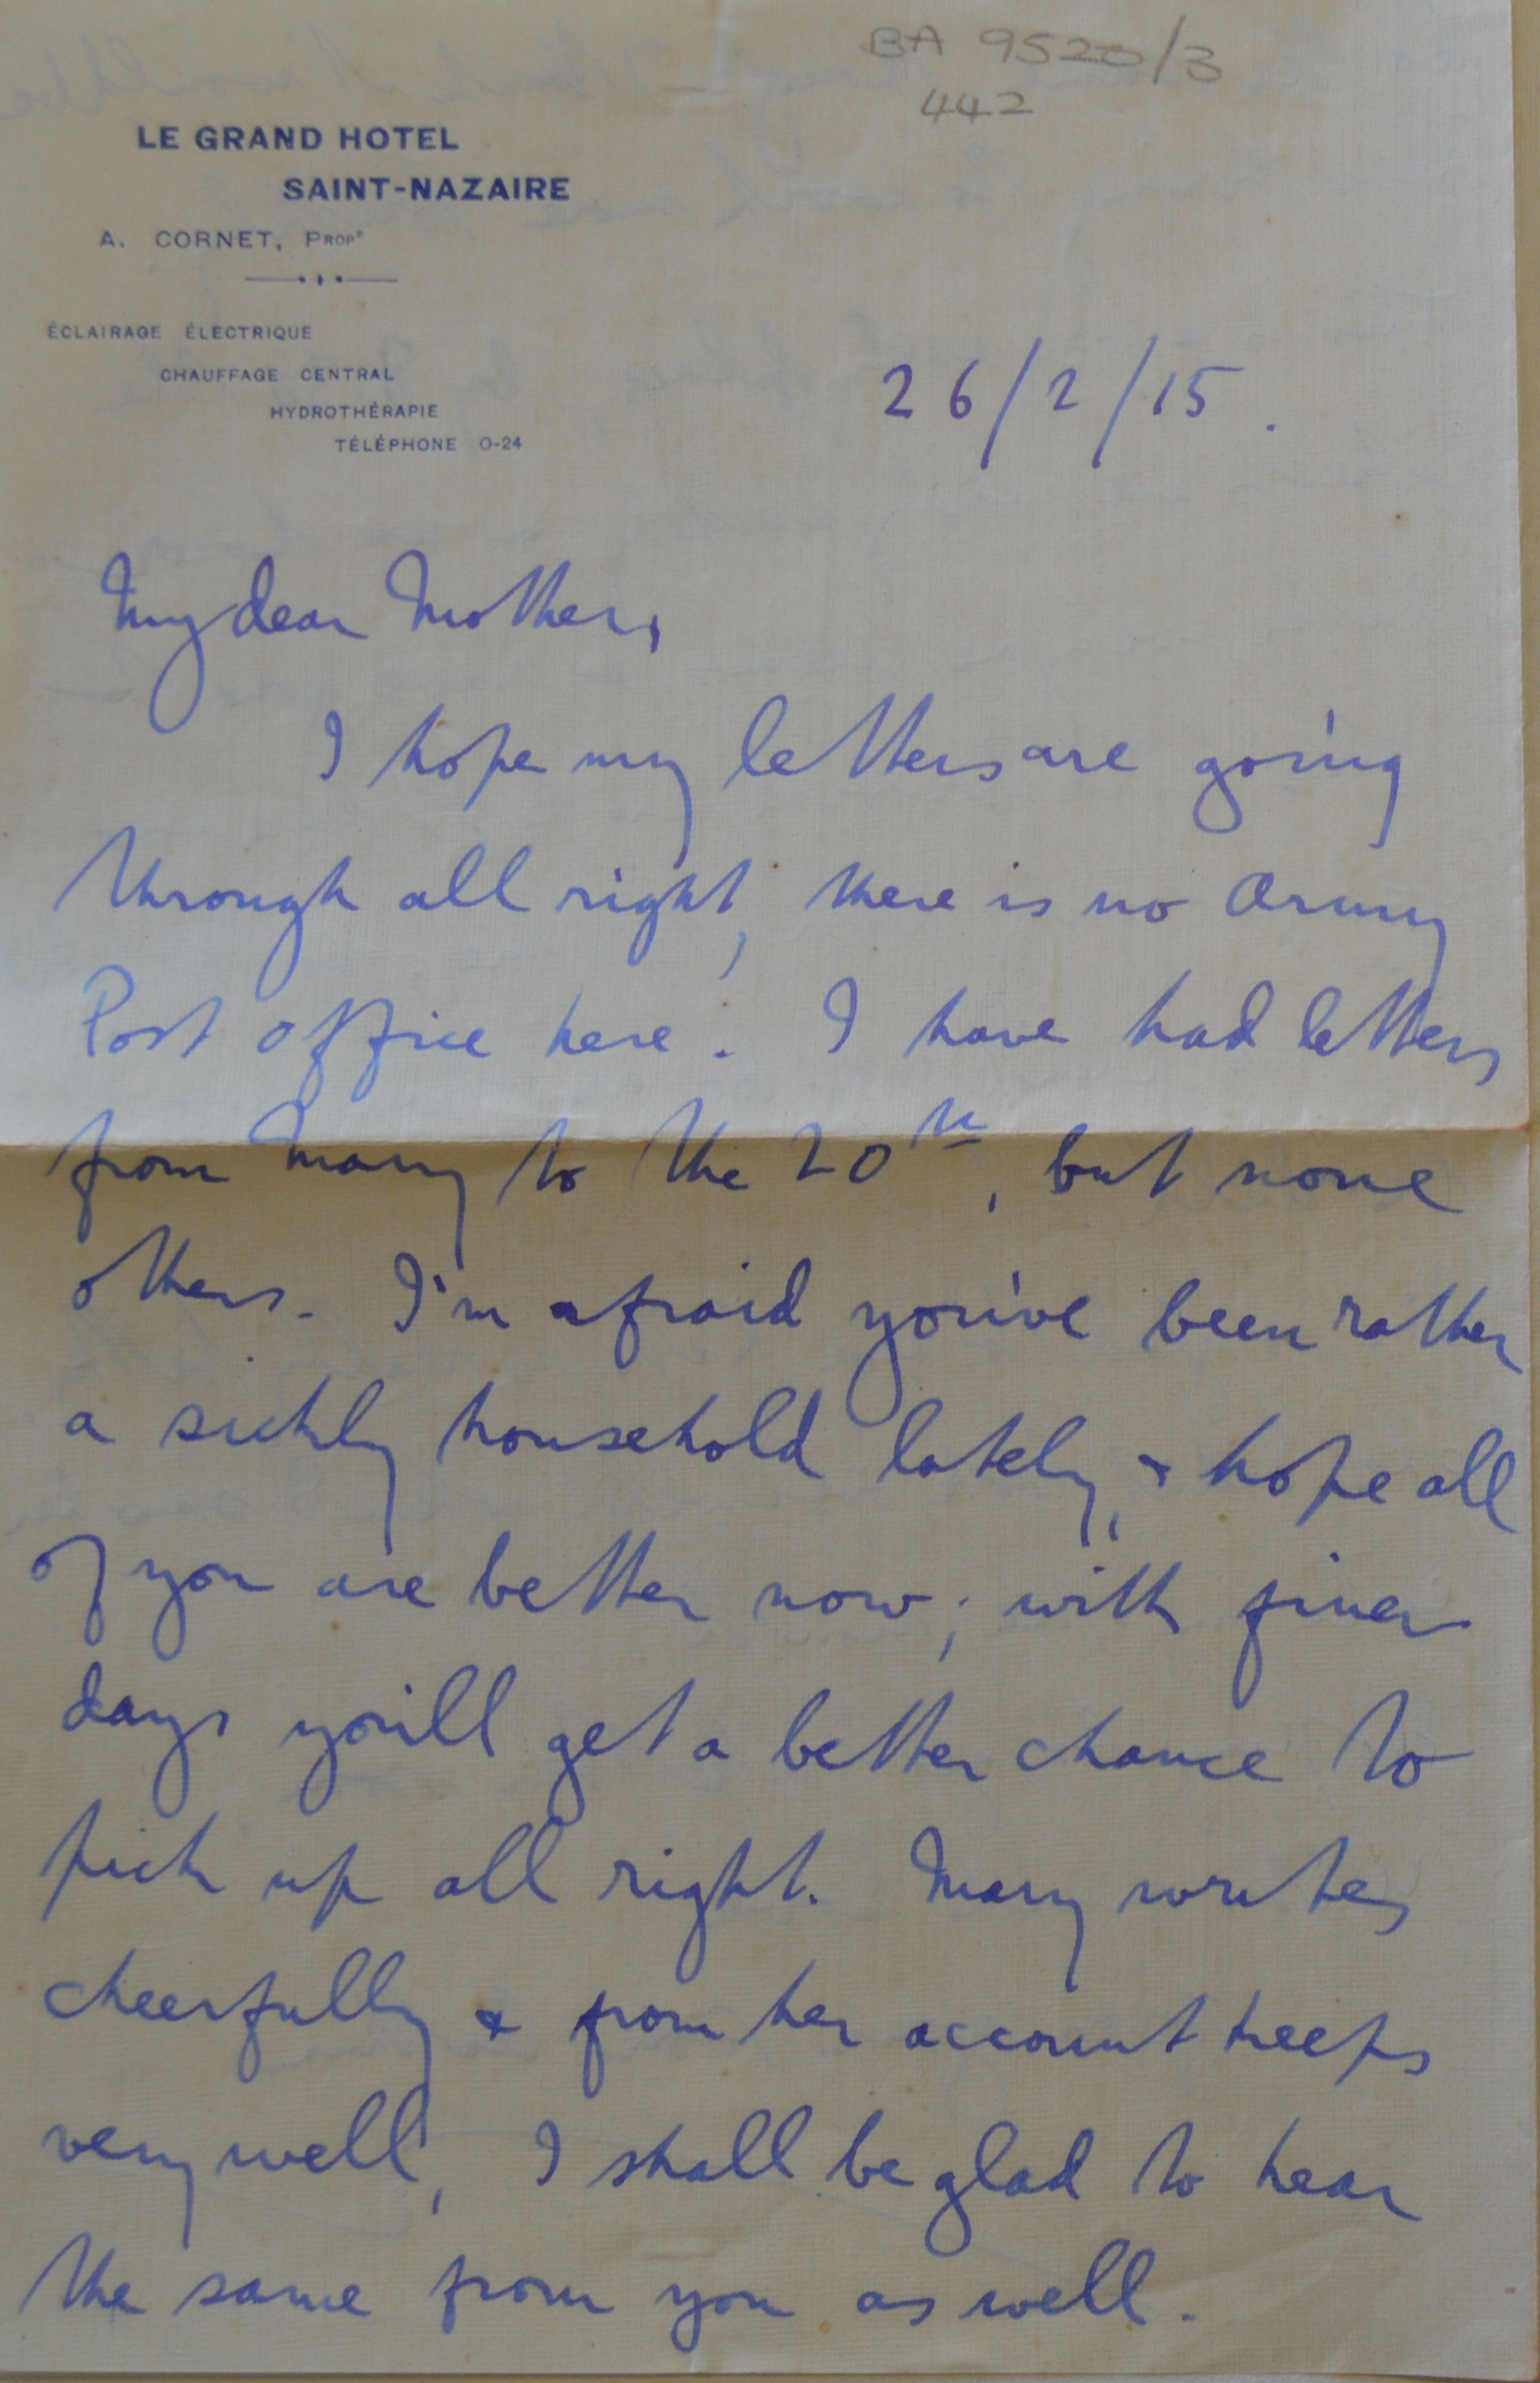 BA 9520/3
442
LE GRAND HOTEL
SAINT-NAZAIRE
A. CORNET, Propᵉ
ÉCLAIRAGE ÉLECTRIQUE
CHAUFFAGE CENTRAL
HYDROTHÉRAPIE
TÉLÉPHONE 0-24
26/2/15.
My dear Mother,
I hope my letters are going
through all right, there is no Army
Post office here. I have had letters
from Mary to the 20th, but none
others. I'm afraid you've been rather
a sickly household lately, & hope all
of you are better now; with finer
days you'll get a better chance to
pick up all right. Mary writes
cheerfully & from her account keeps
very well, I shall be glad to hear
the same from you as well.